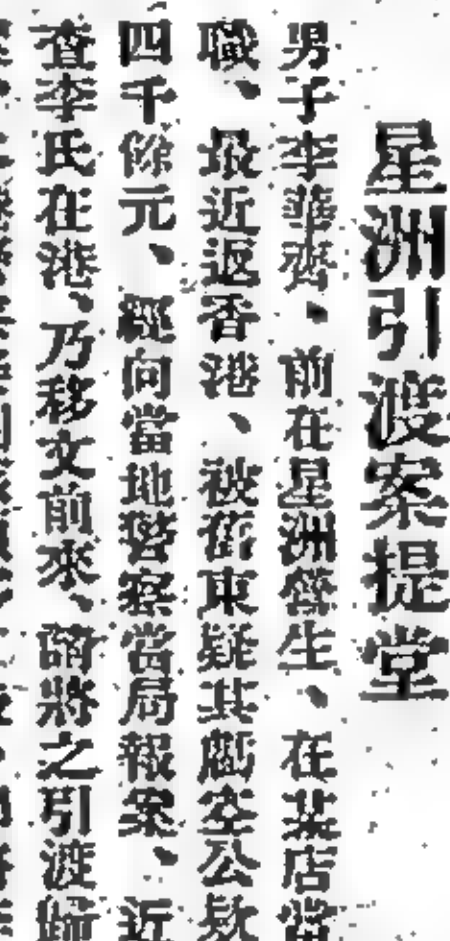 星洲引渡案提堂
男子李華齊、前在星洲營生、在某店當
職、最近返香港、被舊東疑其虧空公欵
四千餘元、經向當地警察當局報案、近
查李氏在港、乃移文前來、請將之引渡歸